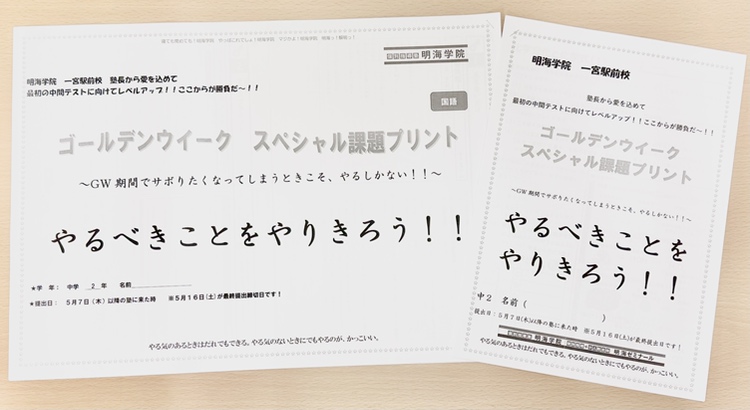 明海学院
明海学院 一宮駅前校 塾長から愛を込めて
最初の中間テストに向けてレベルアップ！！ここからが勝負だ～！！
国語
ゴールデンウイーク スペシャル課題プリント
～GW期間でサボりたくなってしまうときこそ、やるしかない！！～
やるべきことをやりきろう！！
★学 年： 中学 2 年 名前
★提出日： 5月7日（木）以降の塾に来た時 ※5月16日(土)が最終提出締切日です！
やる気のあるときはだれでもできる。やる気のないときにでもやるのが、かっこいい。
明海学院 一宮駅前校
塾長から愛を込めて
最初の中間テストに向けてレベルアップ！！ここからが勝負だ～！！
ゴールデンウイーク
スペシャル課題プリント
～GW期間でサボりたくなってしまうときこそ、やるしかない！！～
やるべきことを
やりきろう！！
中2 名前（ ）
提出日：5月7日(木)以降の塾に来た時 ※5月16日(土)が最終提出日です！
明海学院 明海ゼミナール
やる気のあるときはだれでもできる。やる気のないときにでもやるのが、かっこいい。